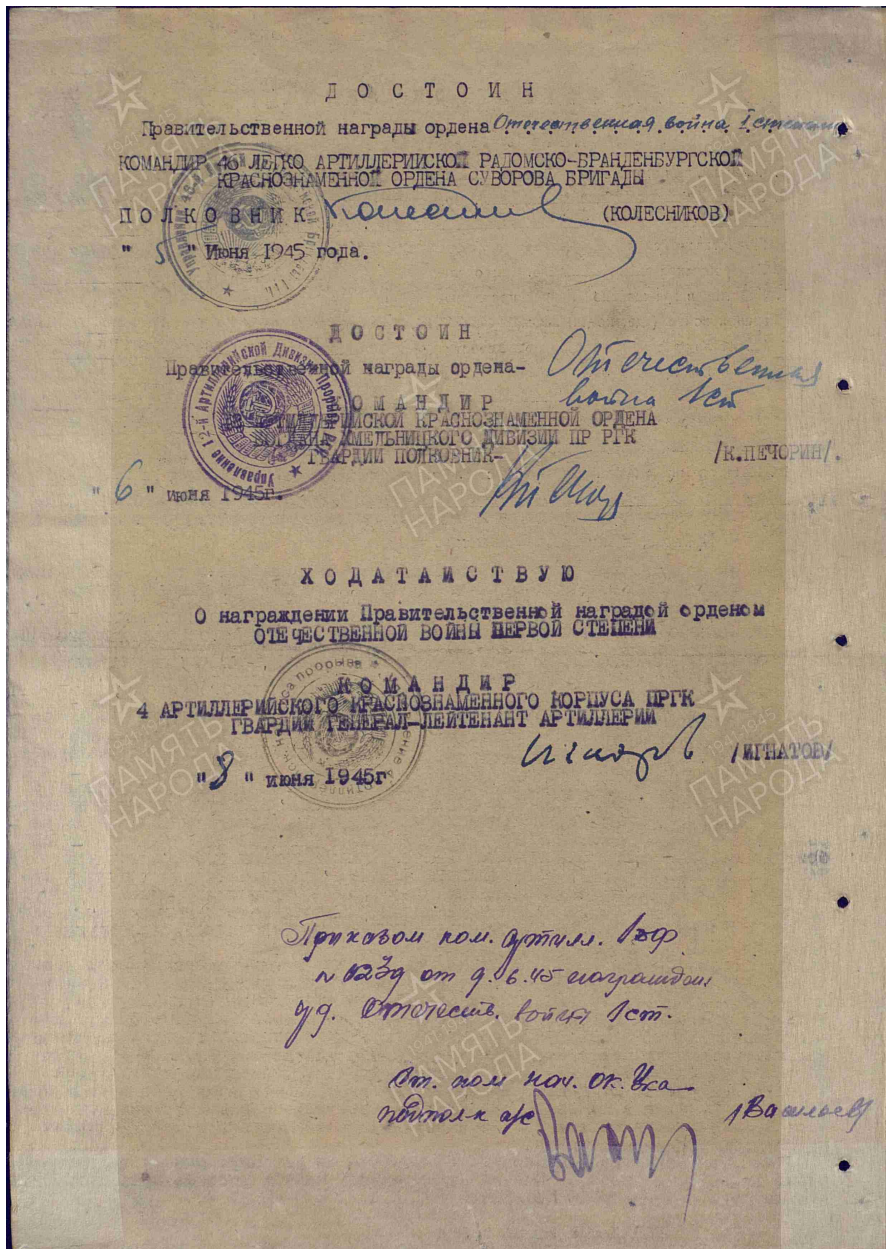 ДОСТОИН
Правительственной награды ордена Отечественная война I степени
КОМАНДИР 46 ЛЕГКО АРТИЛЛЕРИЙСКОЙ РАДОМСКО-БРАНДЕНБУРГСКОЙ
КРАСНОЗНАМЕННОЙ ОРДЕНА СУВОРОВА БРИГАДЫ
ПОЛКОВНИК (КОЛЕСНИКОВ)
"5" Июня 1945 года.
ДОСТОИН
Правительственной награды ордена- Отечественная
война 1 ст
КОМАНДИР
АРТИЛЛЕРИЙСКОЙ КРАСНОЗНАМЕННОЙ ОРДЕНА
БОГДАНА ХМЕЛЬНИЦКОГО ДИВИЗИИ ПР РГК
ГВАРДИИ ПОЛКОВНИК- /К.ПЕЧОРИН/.
"6" июня 1945г.
Управление 12-й Артиллерийской Дивизии Прорыва РГК
ХОДАТАЙСТВУЮ
О награждении Правительственной наградой орденом
ОТЕЧЕСТВЕННОЙ ВОЙНЫ ПЕРВОЙ СТЕПЕНИ
КОМАНДИР
4 АРТИЛЛЕРИЙСКОГО КРАСНОЗНАМЕННОГО КОРПУСА ПРГК
ГВАРДИИ ГЕНЕРАЛ-ЛЕЙТЕНАНТ АРТИЛЛЕРИИ
/ИГНАТОВ/
"8" июня 1945г
Приказом ком. артилл. 1БФ
от 9.6.45 награжден
Отечеств. войны 1 ст.
Ст. пом нач. ОК.
подполк а/с /Васильев/
ПАМЯТЬ НАРОДА